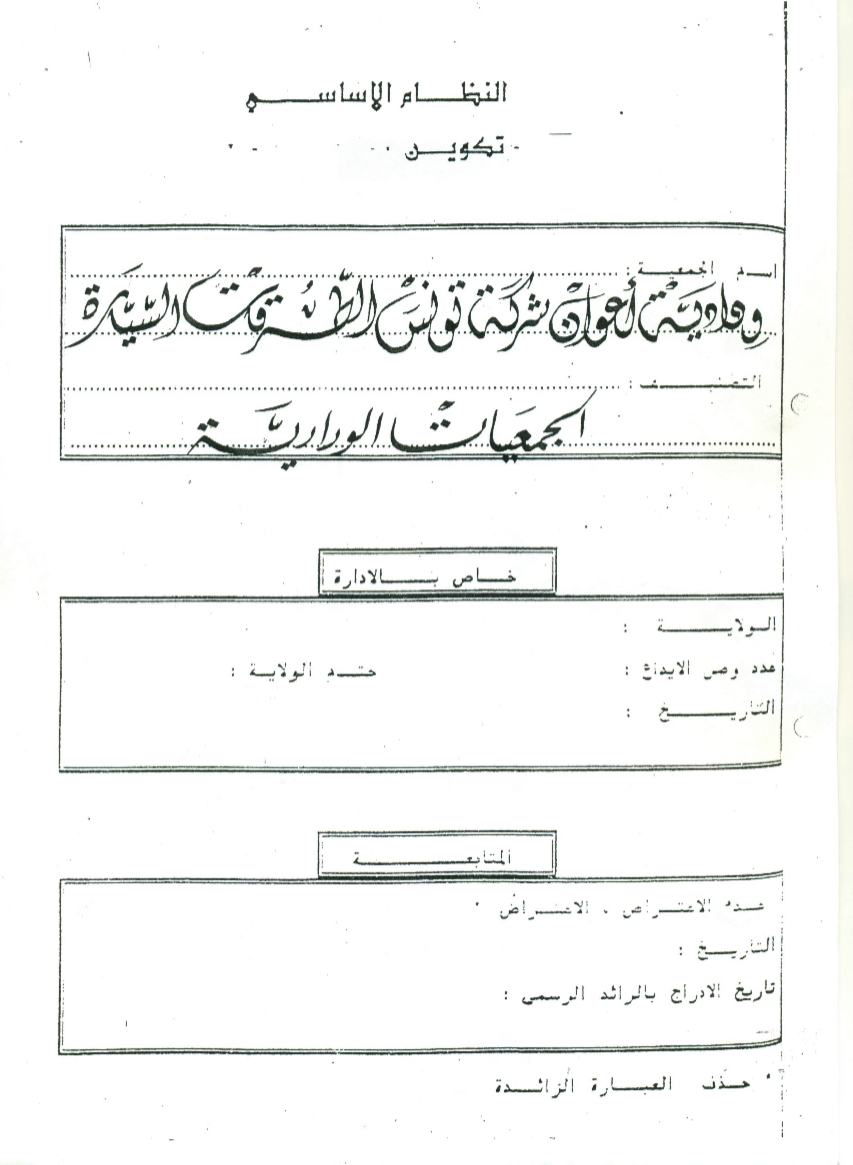 النظام الاساسي
تكوين
اسم الجمعية :
ودادية أعوان شركة تونس الطرقات السيارة
التصنيف :
الجمعيات الودادية
خاص بالادارة
الولاية :
عدد وصل الايداع : ختم الولاية :
التاريخ :
المتابعة
عدم الاعتراض . الاعتراض *
التاريخ :
تاريخ الادراج بالرائد الرسمي :
* حذف العبارة الزائدة